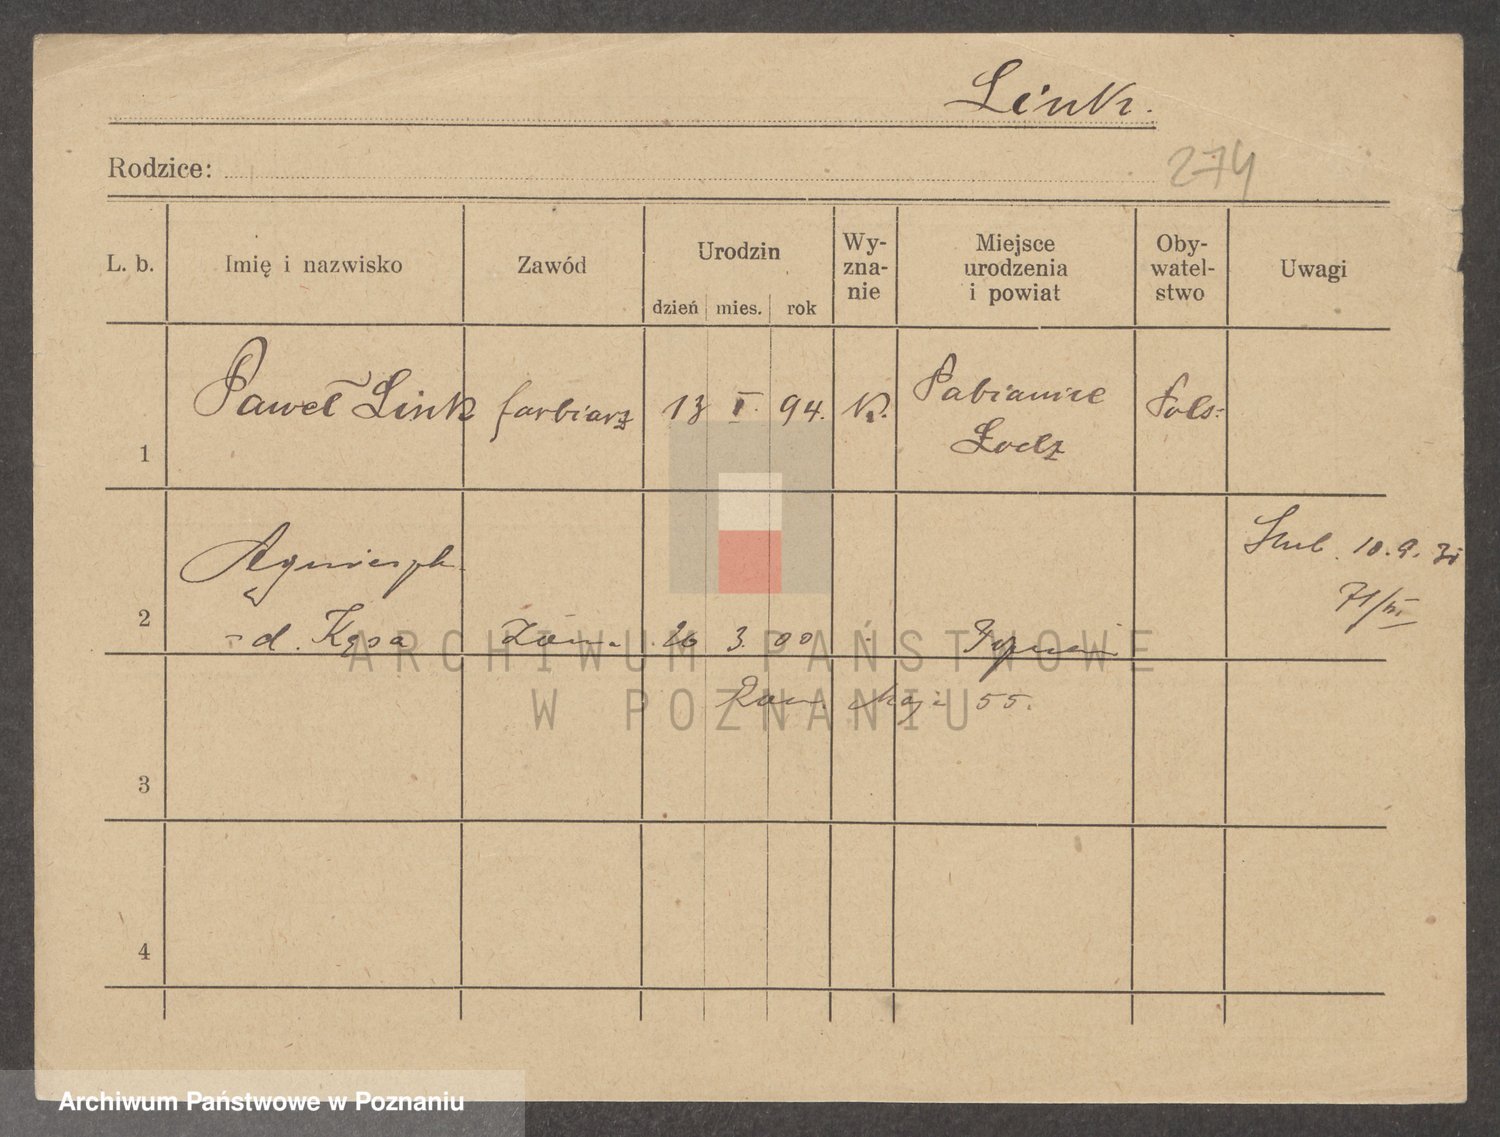 Link.
Rodzice: 274
L. b. Imię i nazwisko Zawód Urodzin dzień mies. rok Wy-zna-nie Miejsce urodzenia i powiat Oby-watel-stwo Uwagi
1 Paweł Link farbiarz 13 I. 94. K. Pabianice Łodz Pols-
Agnieszk Slub. 10.9.
71/
2 d. Kęsa 26 3. 00
55.
3
4
ARCHIWUM PAŃSTWOWE
W POZNANIU
Archiwum Państwowe w Poznaniu